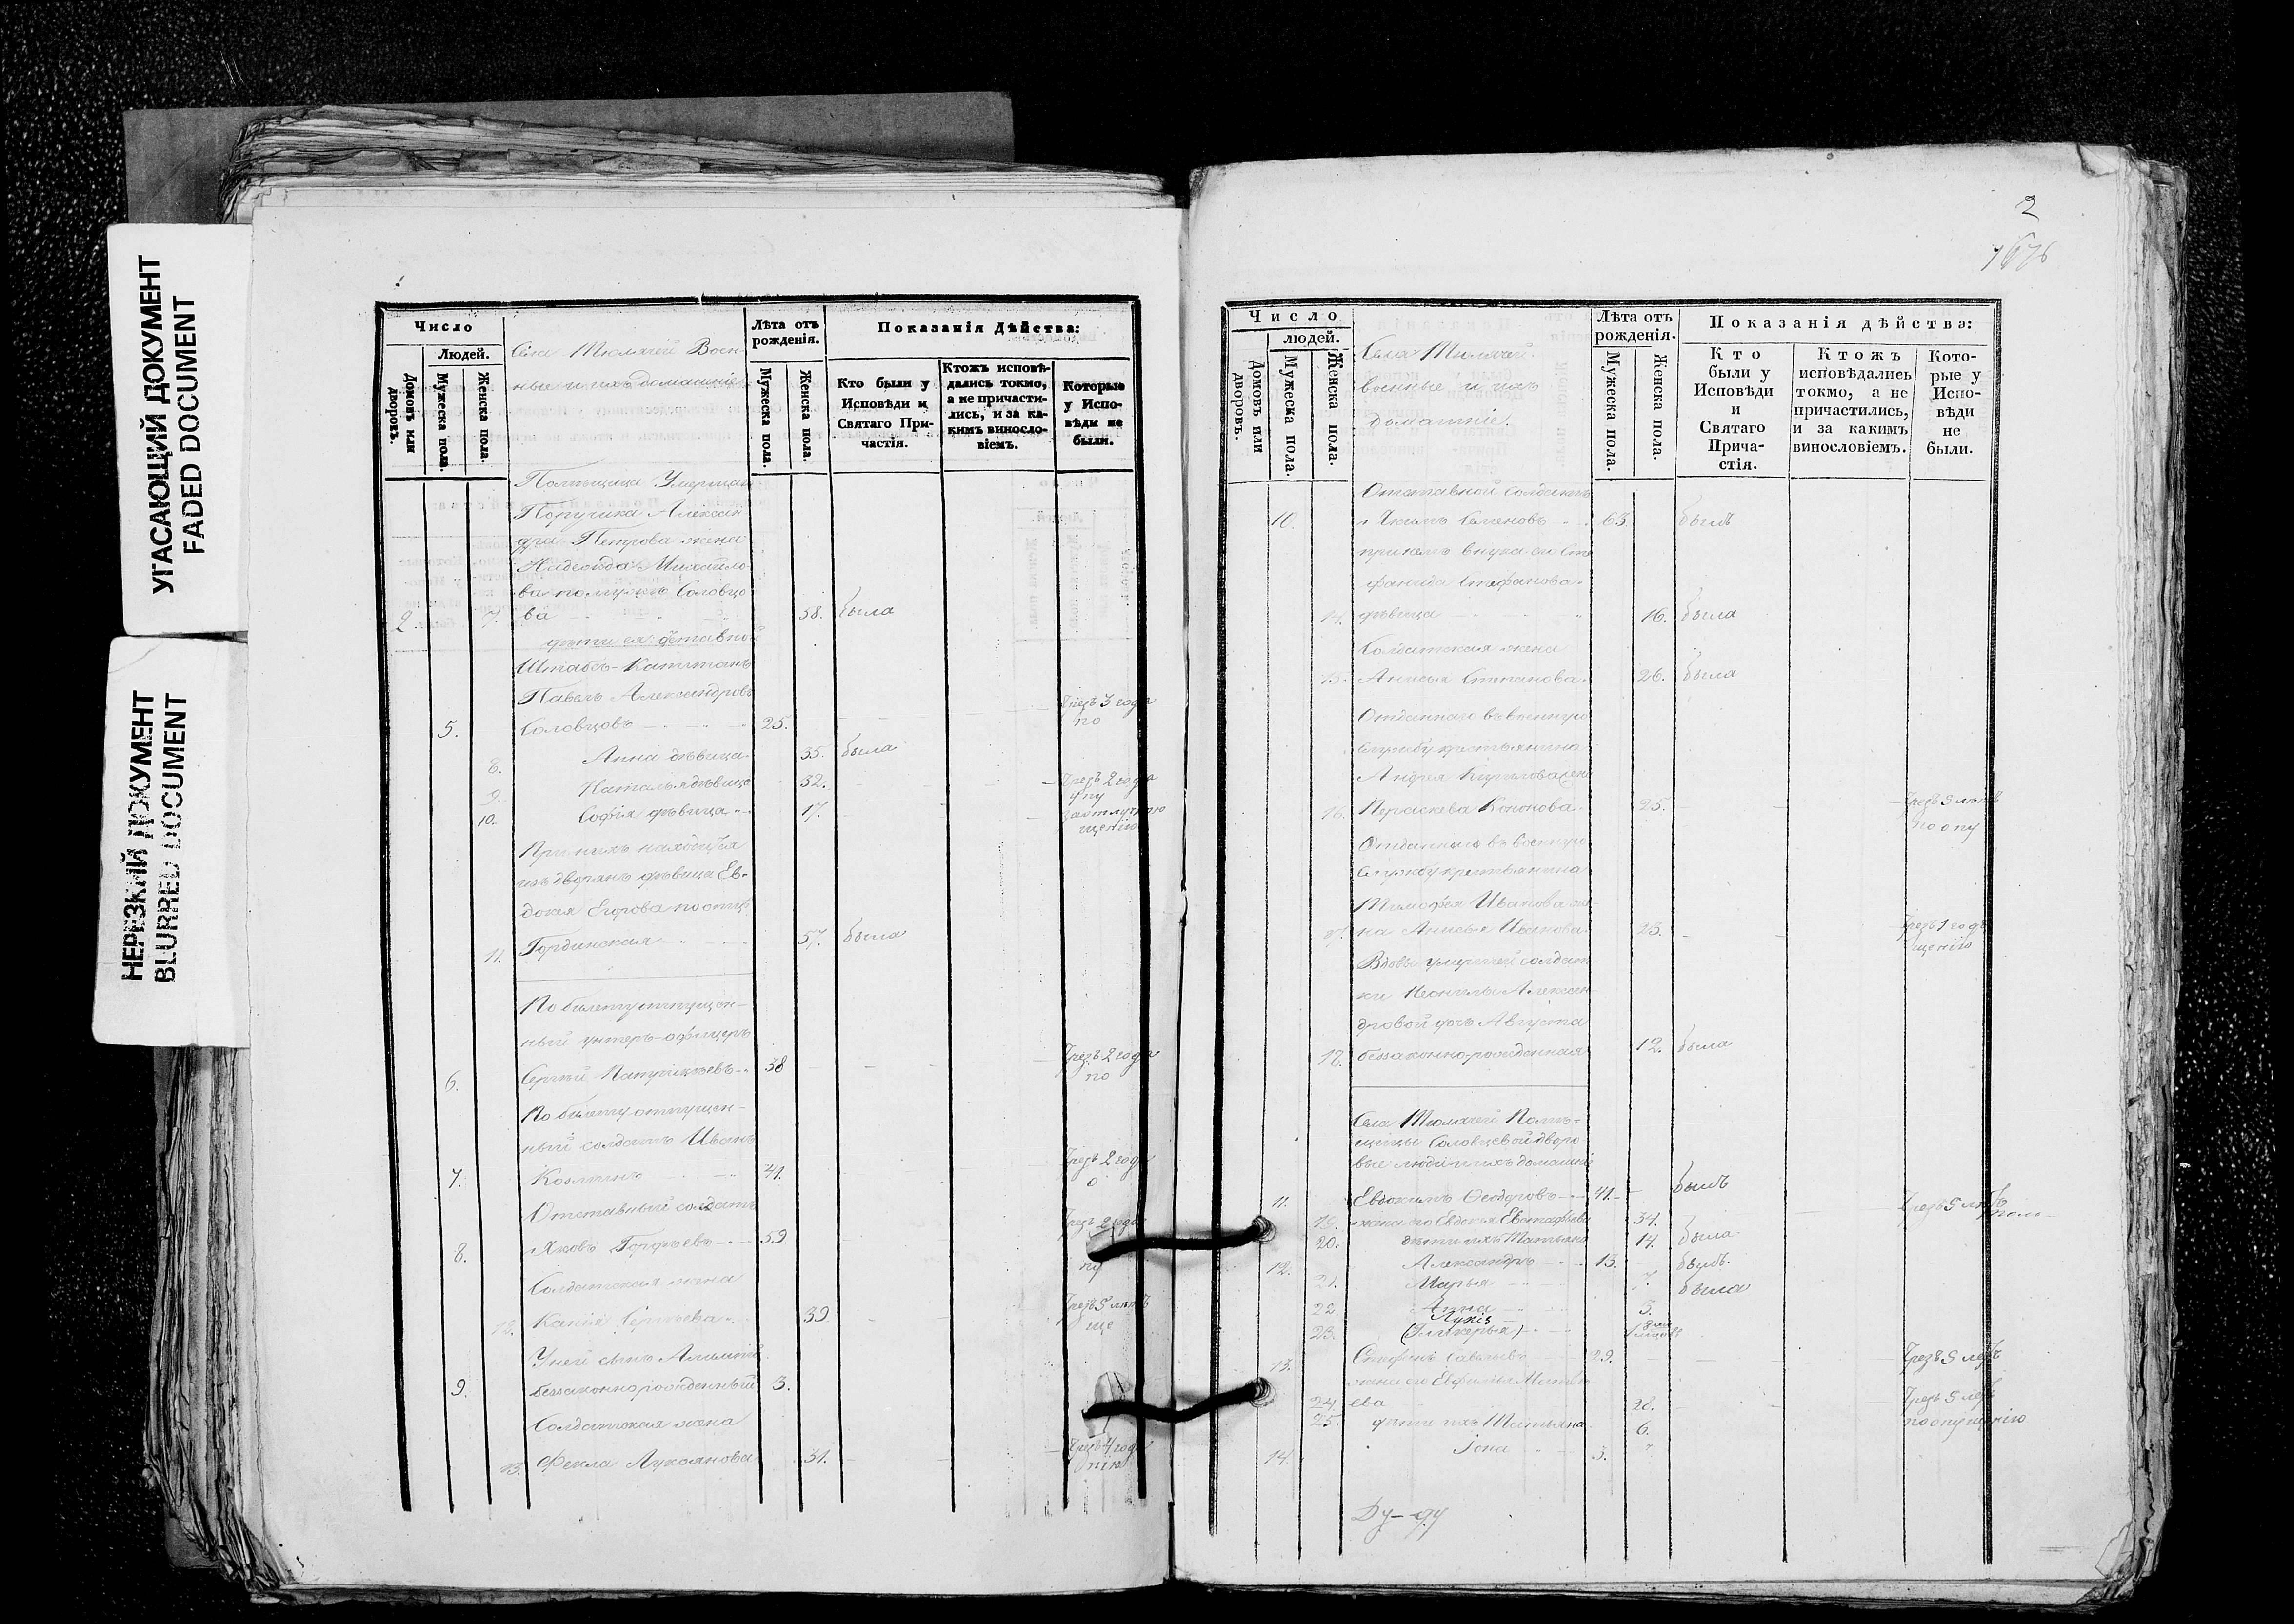 УГАСАЮЩИЙ ДОКУМЕНТ
FADED DOCUMENT
НЕРЕЗКИЙ ДОКУМЕНТ
BLURRED DOCUMENT
Число
Людей.
Домовъ или дворовъ.
Мужеска пола.
Женска пола.
Села Тюлячей Воен-
ные и ихъ домашніе
Лѣта отъ
рожденія.
Мужеска пола.
Женска пола.
Показанія Дѣйства:
Кто были у
Исповѣди и
Святаго При-
частія.
Ктожъ исповѣ-
дались токмо,
а не причасти-
лись, и за ка-
кимъ винослo-
віемъ.
Которые
у Испо-
вѣди не
были.
Помѣщица Умершаго
Поручика Алексан
дра Петрова жена
Михайло
ва по мужѣ Соловцо
2. 7. ва 58. была
дѣти ея:
Штабсъ-Капитанъ
Павелъ Александровъ
5. Соловцовъ 25. Чрезъ 3 года по
8. Анна дѣвица 35. была
9. Наталья дѣвица 32. Чрезъ 2 года
10. Софія дѣвица 17.
При нихъ находится
изъ дворянъ дѣвица Ев-
докія Егорова по отцѣ
11. Гординская 57. была
По билету отпущен-
ный унтеръ-офицеръ
6. Сергѣй 38 Чрезъ 2 года по
По билету отпущен-
ный солдатъ Иванъ
7. Козминъ 41. Чрезъ 2 года о
Отставный солдатъ
8. Яковъ 59. Чрезъ 2 года пу
Солдатская жена
12. Сергѣева 39 Чрезъ 5 лѣтъ ще
У ней сынъ
9. беззаконнорожденный 3.
Солдатская жена
13. Фекла Лукоянова 31. Чрезъ 4 года нію
2
Число
людей.
Домовъ или дворовъ.
Мужеска пола.
Женска пола.
Села Тюлячей
военные и ихъ
домашніе.
Лѣта отъ
рожденія.
Мужеска пола.
Женска пола.
Показанія дѣйства:
Кто
были у
Исповѣди
и
Святаго
Прича-
стія.
Ктожъ
исповѣдались
токмо, а не
причастились,
и за какимъ
винословіемъ.
Кото-
рые у
Испо-
вѣди
не
были.
Отставной солдатъ
10. Якимъ Семеновъ 63. былъ
при немъ внука его Сте
фанида Стефанова
14. дѣвица 16. была
Солдатская жена
15. Анисья Степанова 26. была
Отданнаго въ военную
службу крестьянина
Андрея Кирилова жена
16. Параскева Кононова 25. Чрезъ 5 лѣтъ
по опу
Отданнаго въ военную
службу крестьянина
Тимофея Иванова же-
17. на Анисья Иванова 23. Чрезъ 1 годъ
щенію
Вдовы умершей солдат-
ки Неонилы Алексан-
дровой дочь Августа
18. беззаконно-рожденная 12. была
Села Тюлячей Помѣ-
щицы Соловцевой дворо
вые люди и ихъ домашніе
11. Евдокимъ Ѳеодоровъ 41. былъ
19. жена его Евдокія Евстафьева 34. Чрезъ 5 лѣтъ
20. дѣти ихъ Татьяна 14. была
12. Александръ 13. былъ
21. Марья 7. была
22. Анна 3.
Лукія
23. (Гликерья)
13. Стефанъ Савельевъ 29. Чрезъ 5 лѣтъ
жена его Евфимія Матвѣ
24. ева 28. Чрезъ 5 лѣтъ
25. дѣти ихъ Татьяна 6. по опущенію
14. Іона 3.
Ду-ду